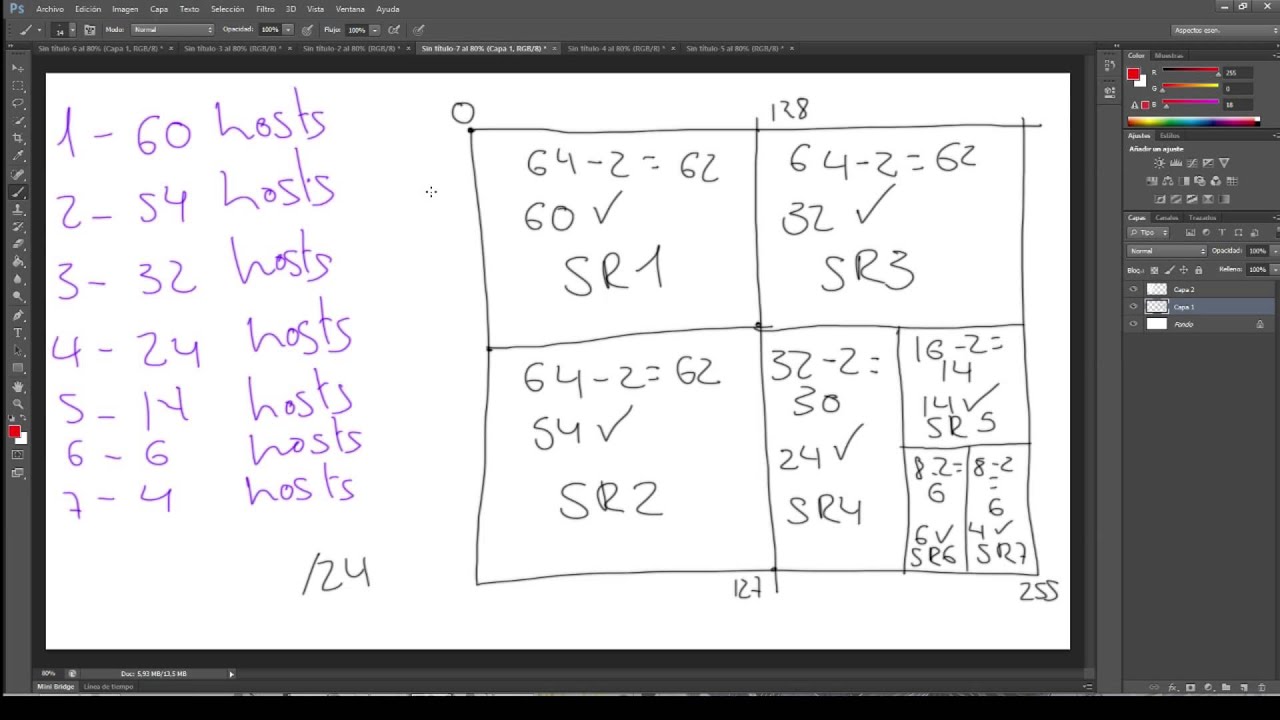 Ps Archivo Edición Imagen Capa Texto Selección Filtro 3D Vista Ventana Ayuda
14 Modo: Normal Opacidad: 100% Flujo: 100% Aspectos esen.
Sin título-6 al 80% (Capa 1, RGB/8) * × Sin título-3 al 80% (RGB/8) * × Sin título-2 al 80% (RGB/8) * × Sin título-7 al 80% (Capa 1, RGB/8) * × Sin título-4 al 80% (RGB/8) * × Sin título-5 al 80% (RGB/8) * ×
1 - 60 hosts
2 - 54 hosts
3 - 32 hosts
4 - 24 hosts
5 - 14 hosts
6 - 6 hosts
7 - 4 hosts
/24
0
128
64-2=62
60 ✓
SR1
64-2=62
32 ✓
SR3
64-2=62
54 ✓
SR2
32-2=
30
24 ✓
SR4
16-2=
14
14 ✓
SR5
8-2=
6
6 ✓
SR6
8-2
=
6
4 ✓
SR7
127
255
Color Muestras
R 255
G 0
B 18
Ajustes Estilos
Añadir un ajuste
Capas Canales Trazados
Tipo
Normal Opacidad: 100%
Bloq.: Relleno: 100%
Capa 2
Capa 1
Fondo
80% Doc: 5,93 MB/13,5 MB
Mini Bridge Línea de tiempo